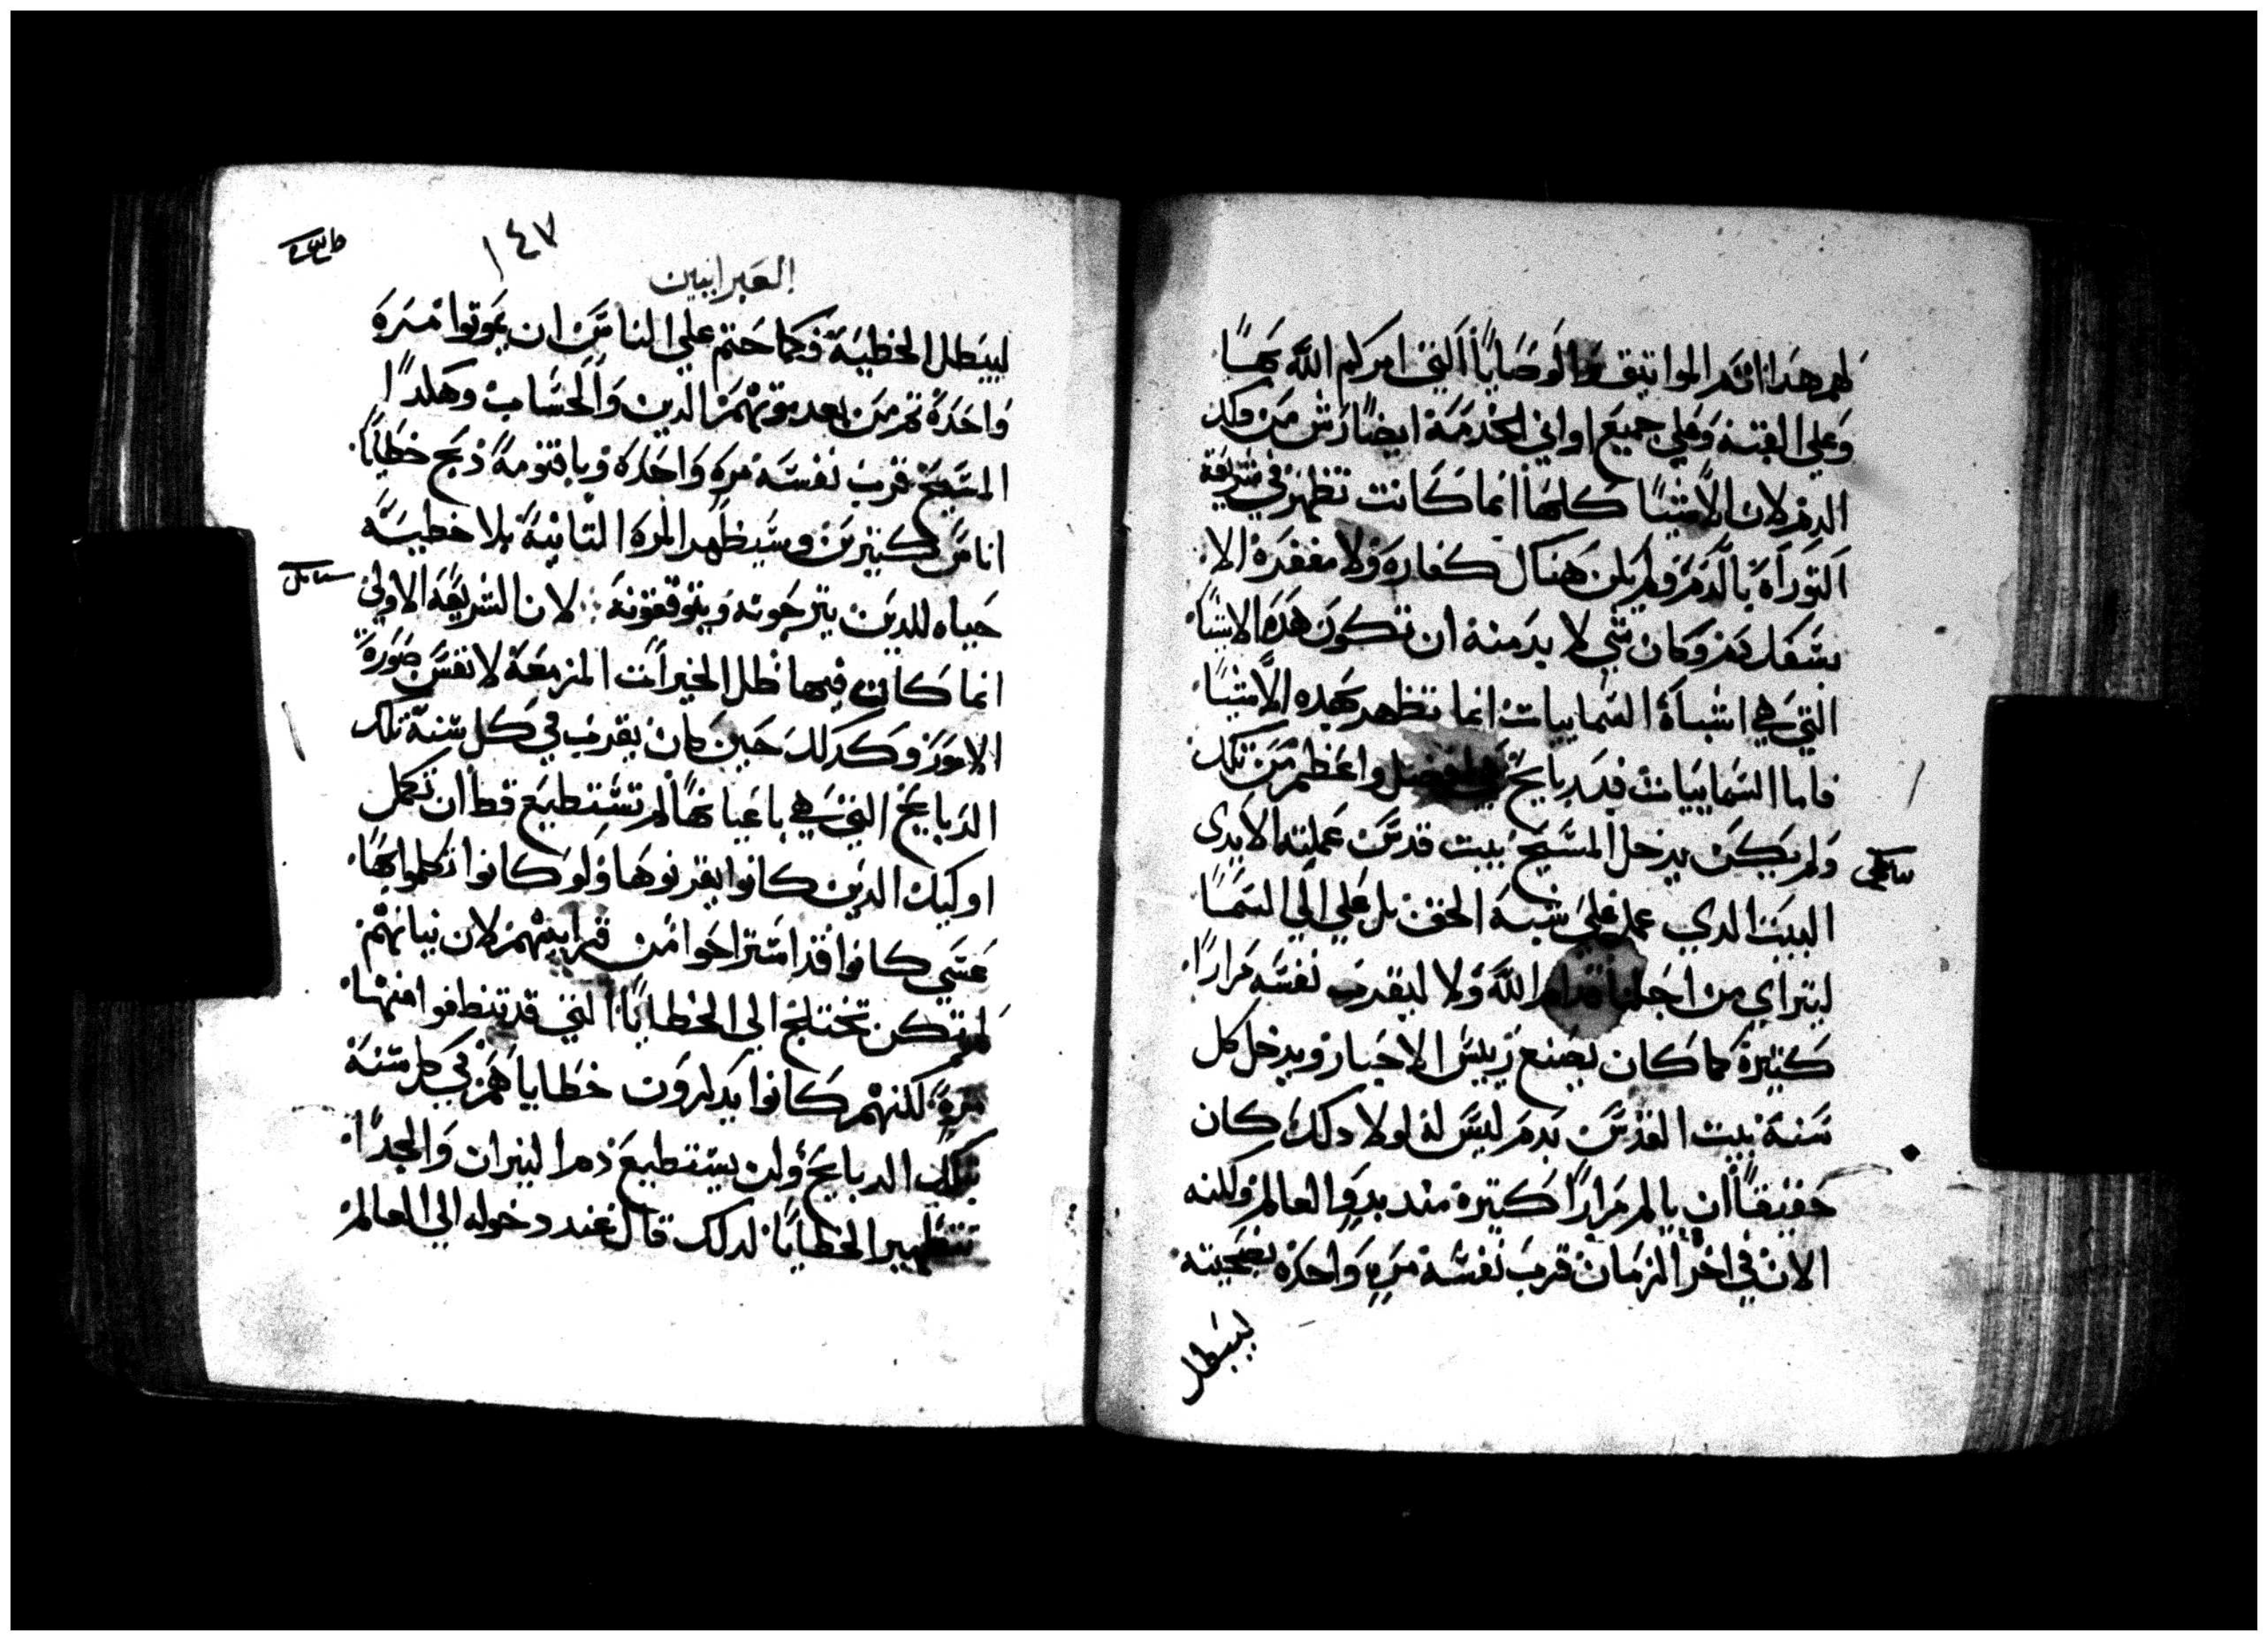 لهم هدا اثم المواتيق والوصايا التي امركم الله بها
وعلي القبة وعلي جميع اواني الخدمة ايضا رش من دلك
الدم لان الاشيا كلها انما كانت تظهر في شريعة
التوراه بالدم ولم يكن هناك كفاره ولا مغفره الا
بسفك دم وكان شي لا بد منه ان تكون هده الاشيا
التي هي اشباه السماييات انما تظهر بهده الاشيا
فاما السماييات فبدبايح هي افضل واعظم من تلك
ولم يكن يدخل المسيح بيت قدس عملته الايدي
البيت الدي عمل علي شبه الحق بل علي الي السما
ليتراي من اجلنا قدام الله ولا ليقرب نفسه مرارا
كتيرة كما كان يصنع رييس الاحبار ويدخل كل
سنة بيت القدس بدم ليس له لولا دلك كان
حقيقا ان يالم مرارا كتيرة مند بدو العالم ولكنه
الان في اخر الزمان قرب نفسه مره واحده بضحيته
ليبطل
١٤٧
العبرانيين
ليبطل الخطية فكما حتم علي الناس ان يموتوا مره
واحدة تم من بعد موتهم الدين والحساب وهكدا
المسيح قرب نفسه مره واحده وباقنومه دبح خطايا
اناس كتيرين وسيظهر المره التانية بلا خطيه
حياه للدين يترجونه ويتوقعونه لان الشريعة الاولي
انما كانت فيها ظل الخيرات المزمعة لا نفس صورة
الامور وكدلك حين كان يقرب في كل سنة تلك
الدبايح التي هي باعيانها لم تستطيع قط ان تكمل
اوليك الدين كانوا يقربوها ولو كانوا تكملوا بها
عسي كانوا قد استراحوا من قرابينهم لان نياتهم
لم تكن تختلج الي الخطايا التي قد تنظفوا منها
مرة لكنهم كانوا يدكرون خطاياهم في كل سنة
بتلك الدبايح ولن يستطيع دم التيران والجدا
تتطهير الخطايا لدلك قال عند دخوله الي العالم